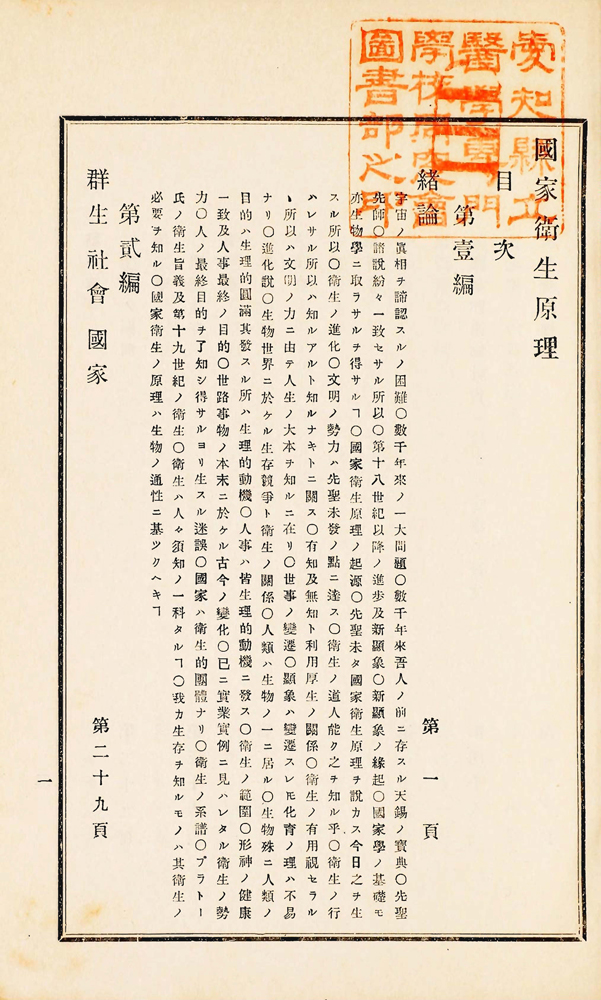 愛知縣立
醫學專門
學校
圖書部之印
國家衛生原理
目次
第壹編
緒論 第一頁
宇宙ノ眞相ヲ諦認スルノ困難〇數千年來ノ一大問題〇數千年來吾人ノ前ニ存スル天錫ノ寶典〇先聖
先師〇諸說紛々一致セサル所以〇第十八世紀以降ノ進步及新顯象〇新顯象ノ緣起〇國家學ノ基礎モ
亦生物學ニ取ラサルヲ得サルヿ〇國家衛生原理ノ起源〇先聖未タ國家衛生原理ヲ說カス今日之ヲ生
スル所以〇衛生ノ進化〇文明ノ勢力ハ先聖未發ノ點ニ達ス〇衛生ノ道人能ク之ヲ知ル乎〇衛生ノ行
ハレサル所以ハ知ルアルト知ルナキトニ關ス〇有知及無知ト利用厚生ノ關係〇衛生ノ有用視セラル
ヽ所以ハ文明ノ力ニ由テ人生ノ大本ヲ知ルニ在リ〇世事ノ變遷〇顯象ハ變遷スレ𪜈化育ノ理ハ不易
ナリ〇進化說〇生物世界ニ於ケル生存競爭ト衛生ノ關係〇人類ハ生物ノ一ニ居ル〇生物殊ニ人類ノ
目的ハ生理的圓滿其發スル所ハ生理的動機〇人事ハ皆生理的動機ニ發ス〇衛生ノ範圍〇形神ノ健康
一致及人事最終ノ目的〇世路事物ノ本末ニ於ケル古今ノ變化〇已ニ實業實例ニ見ハレタル衛生ノ勢
力〇人ノ最終目的ヲ了知シ得サルヨリ生スル迷誤〇國家ハ衛生的團體ナリ〇衛生ノ系譜〇プラトー
氏ノ衛生旨義及第十九世紀ノ衛生〇衛生ハ人々須知ノ一科タルヿ〇我カ生存ヲ知ルモノハ其衛生ノ
必要ヲ知ル〇國家衛生ノ原理ハ生物ノ通性ニ基ツクヘキヿ
第貳編
群生 社會 國家 第二十九頁
一